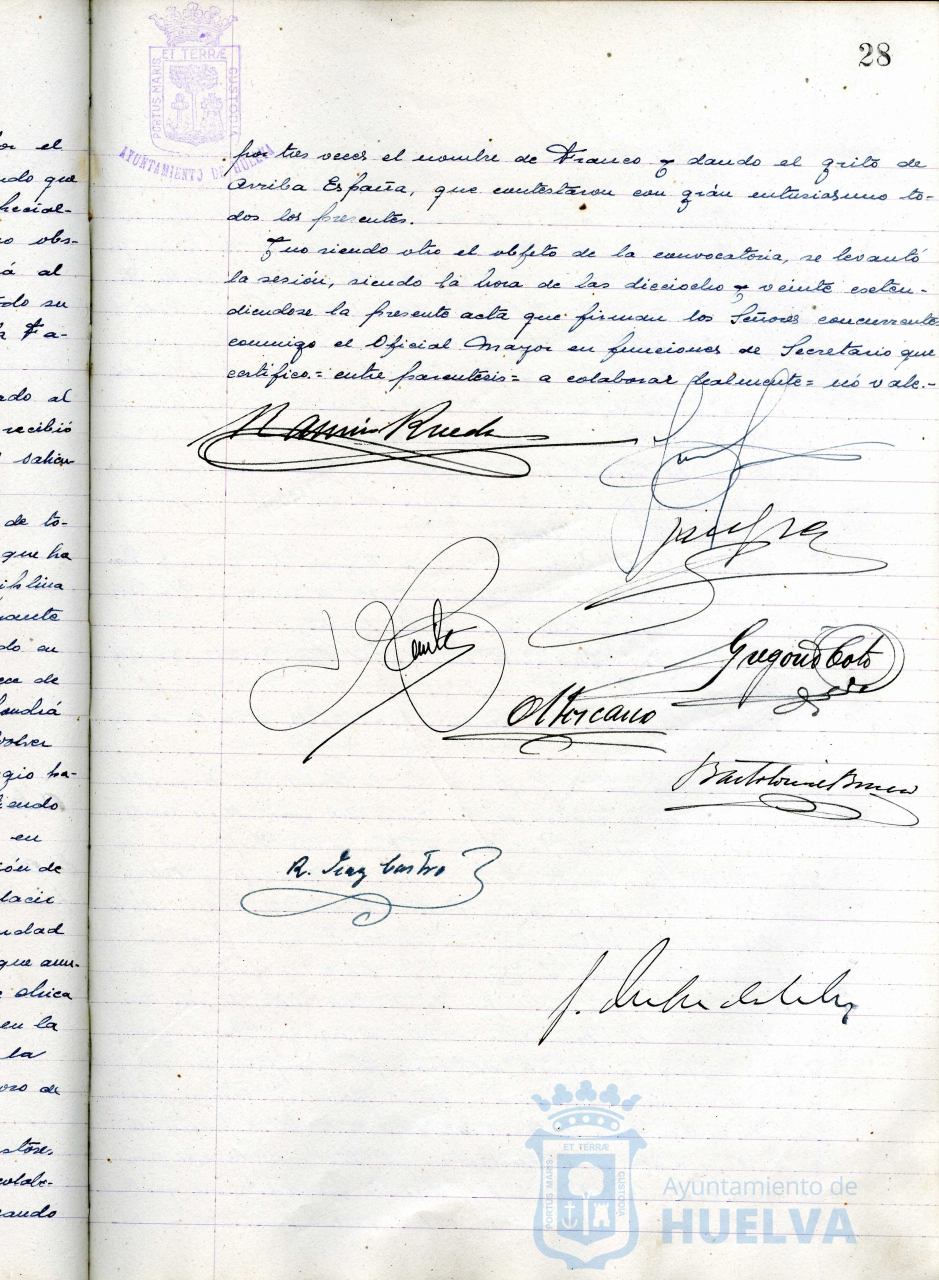 28
PORTUS MARIS ET TERRÆ CUSTODIA
AYUNTAMIENTO DE HUELVA
por tres veces el nombre de Franco y dando el grito de
Arriba España, que contestaron con grán entusiasmo to-
dos los presentes.
Y no siendo otro el objeto de la convocatoria, se levantó
la sesión, siendo la hora de las dieciocho y veinte exten-
diendose la presente acta que firman los Señores concurrentes
conmigo el Oficial Mayor en funciones de Secretario que
certifico.= entre parentesis= a colaborar lealmente= nó vale.-
Rueda
Gregorio Coto
Toscano
Bartolomé
R. Diaz Castro
or el
ndo que
pecial-
no obs-
á al
su
Fa-
ado al
recibió
de to-
que ha
do en
de
volver
gio ha-
iendo
en
ión de
que
chica
en la
la
PORTUS MARIS ET TERRÆ CUSTODIA
Ayuntamiento de
HUELVA